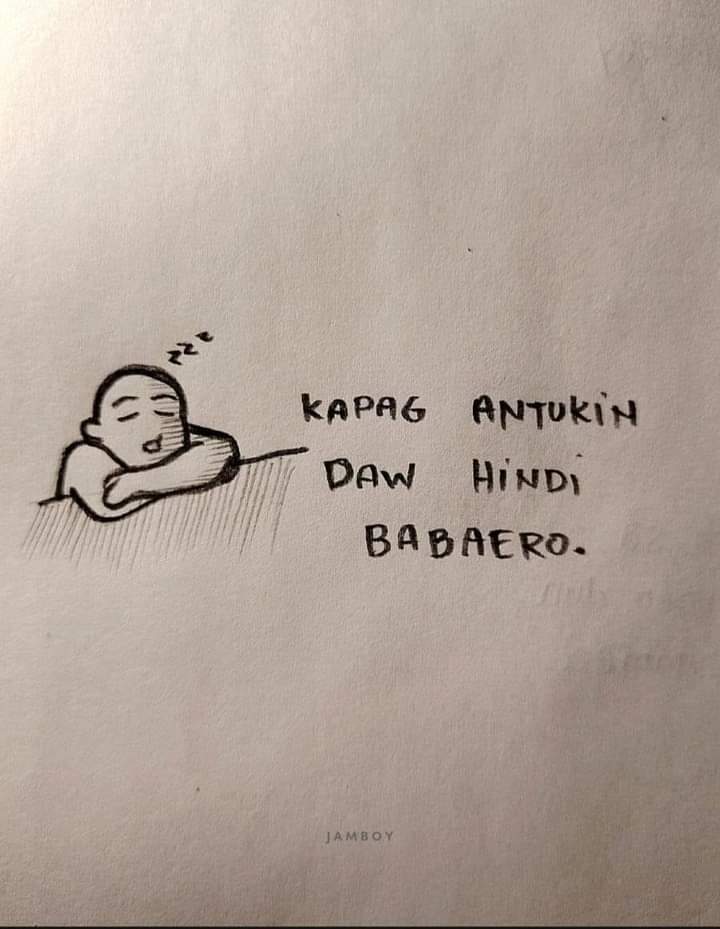 zzz
KAPAG ANTUKiN
DAW HiNDi
BABAERO.
JAMBOY